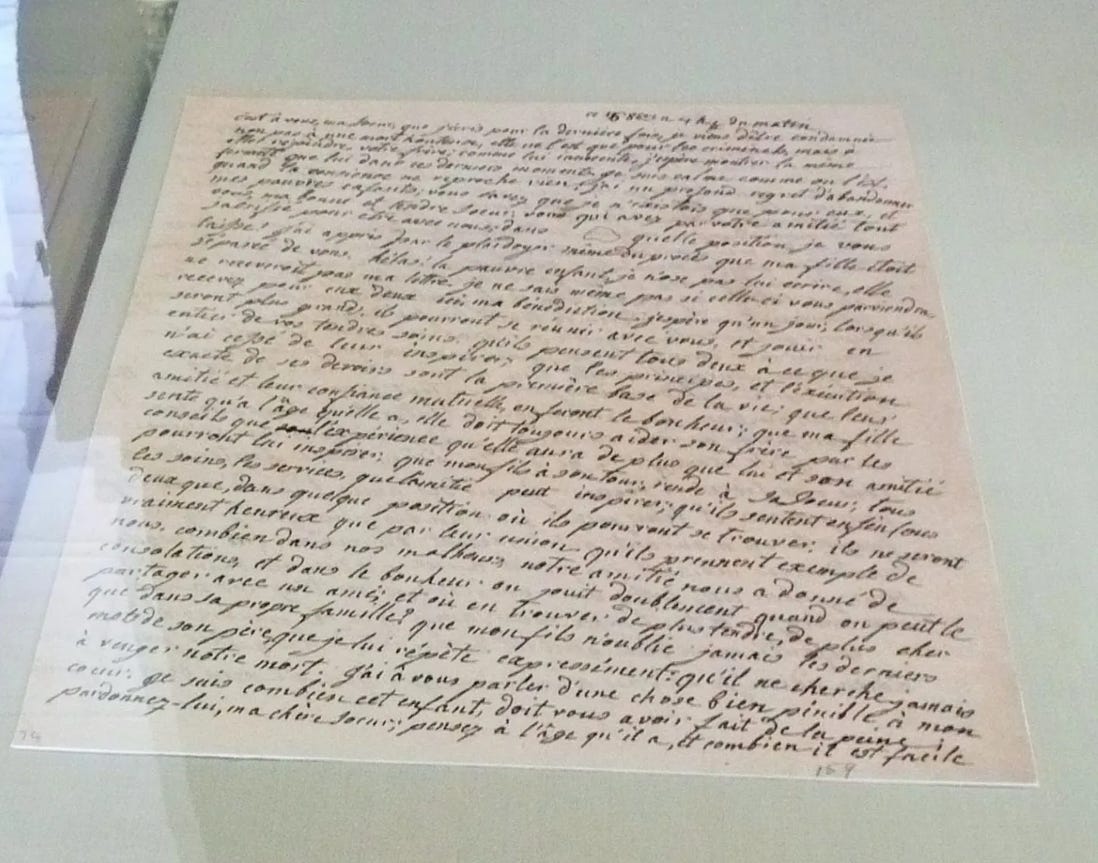 ce 16 8bre a 4 h ½ du matin
c'est à vous, ma soeur, que j'écris pour la dernière fois, je viens d'être condamnée
non pas à une mort honteuse, elle ne l'est que pour les criminels, mais à
aller rejoindre votre frère; comme lui innocente, j'espère montrer la même
fermeté que lui dans ces derniers moments. je suis calme comme on l'est
quand la conscience ne reproche rien, j'ai un profond regret d'abandonner
mes pauvres enfants; vous savez que je n'existois que pour eux, et
vous, ma bonne et tendre soeur; vous qui avez par votre amitié tout
sacrifié pour être avec nous; dans quelle position je vous
laisse! j'ai appris par le plaidoyer même du procès que ma fille étoit
séparée de vous. hélas! la pauvre enfant, je n'ose pas lui écrire, elle
ne recevroit pas ma lettre, je ne sais même pas si celle ci vous parviendra,
recevez pour eux deux ici ma bénédiction. j'espère qu'un jour, lorsqu'ils
seront plus grands, ils pourront se réunir avec vous, et jouir en
entier de vos tendres soins. qu'ils pensent tous deux à ce que je
n'ai cessé de leur inspirer, que les principes, et l'exécution
exacte de ses devoirs sont la première base de la vie; que leur
amitié et leur confiance mutuelle, en feront le bonheur; que ma fille
sente qu'à l'âge qu'elle a, elle doit toujours aider son frère par les
conseils que l'expérience qu'elle aura de plus que lui et son amitié
pourront lui inspirer; que mon fils à son tour, rende à sa soeur, tous
les soins, les services, que l'amitié peut inspirer; qu'ils sentent enfin tous
deux que, dans quelque position où ils pourront se trouver, ils ne seront
vraiment heureux que par leur union. qu'ils prennent exemple de
nous, combien dans nos malheurs, notre amitié nous a donné de
consolations, et dans le bonheur on jouit doublement quand on peut le
partager avec un ami; et où en trouver de plus tendre, de plus cher
que dans sa propre famille? que mon fils n'oublie jamais les derniers
mots de son père, que je lui répète expressément: qu'il ne cherche jamais
à venger notre mort. j'ai à vous parler d'une chose bien pénible à mon
coeur. je sais combien cet enfant, doit vous avoir fait de la peine;
pardonnez-lui, ma chère soeur; pensez à l'âge qu'il a, et combien il est facile
159